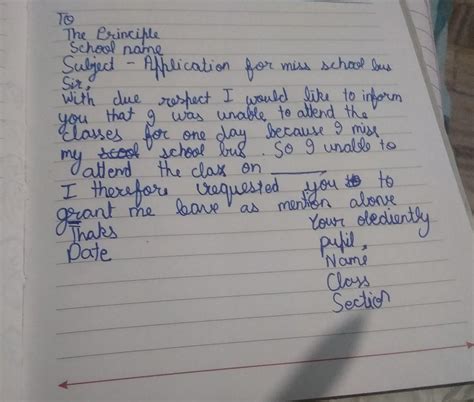 To
The Principle
School name
Subject - Application for miss school bus
Sir,
With due respect I would like to inform
you that I was unable to attend the
classes for one day because I miss
my school bus. So I unable to
attend the class on ______
I therefore requested you to
grant me leave as mention above
Thaks
Your obediently
Date
pupil,
Name
Class
Section